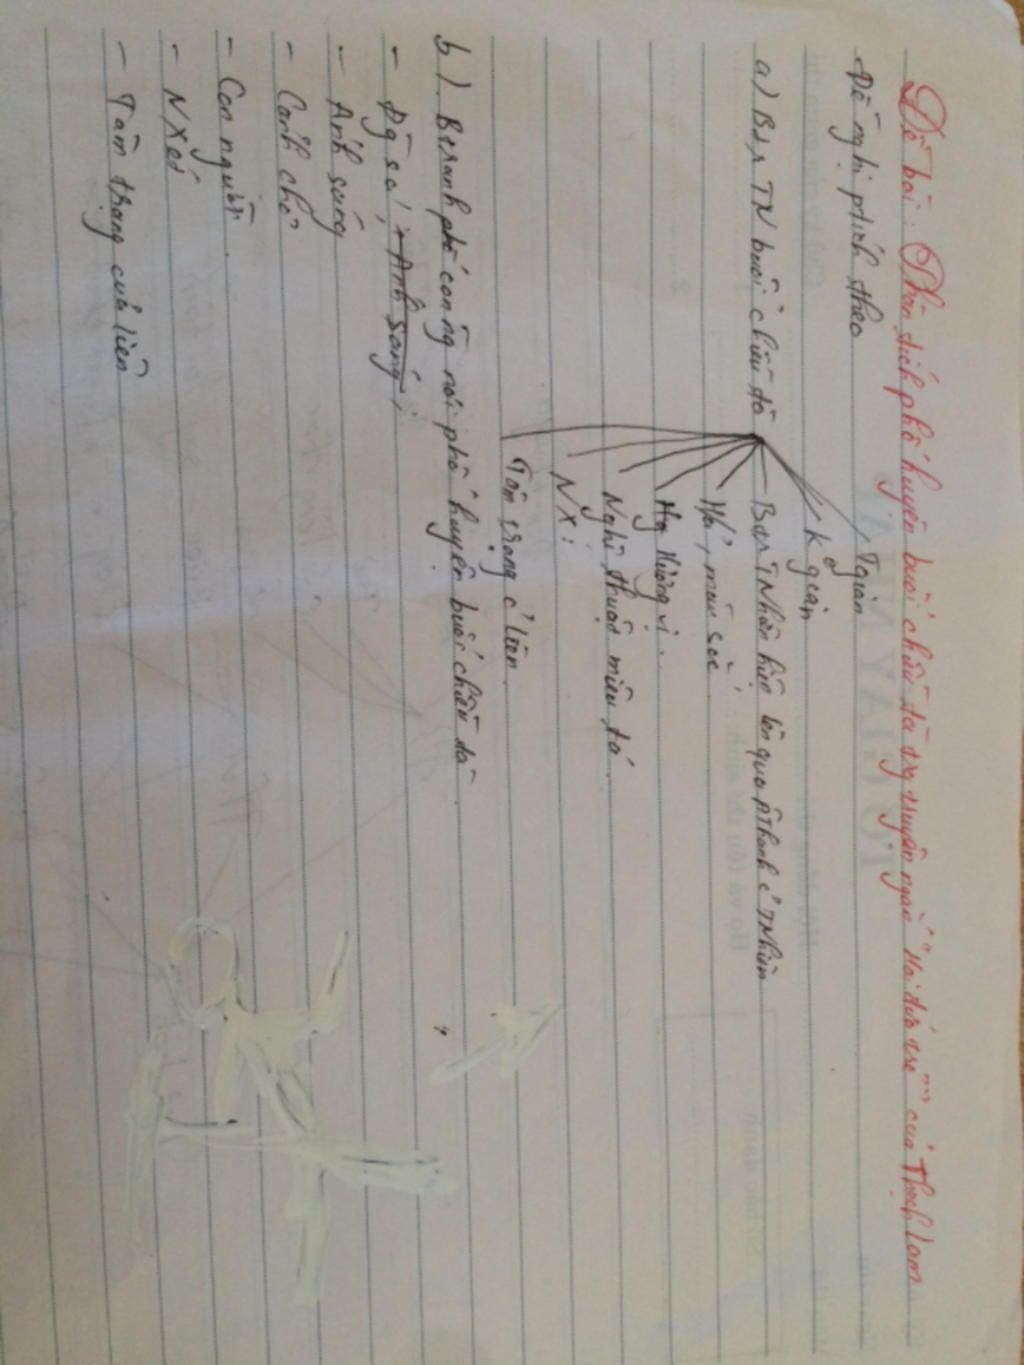 Đề bài: Phân tích phố huyện buổi chiều tà trg truyện ngắn "Hai đứa trẻ" của Thạch Lam
Đề nghị ptích theo
a) Btr TN buổi chiều tà
Tgian
k gian
Btr TNhiên hiện lên qua âthanh c̉ TNhiên
H/ả, màu sắc
Mg Hương vị.
Nghệ thuật miêu tả.
NX:
Tâm trạng c̉ Liên.
b) Btranh phố con ng nơi phố huyện buổi chiều tà.
- Đg sá, + Ánh sáng,
- Ánh sáng
- Cảnh chợ
- Con người.
- NXét
- Tâm trạng của Liên